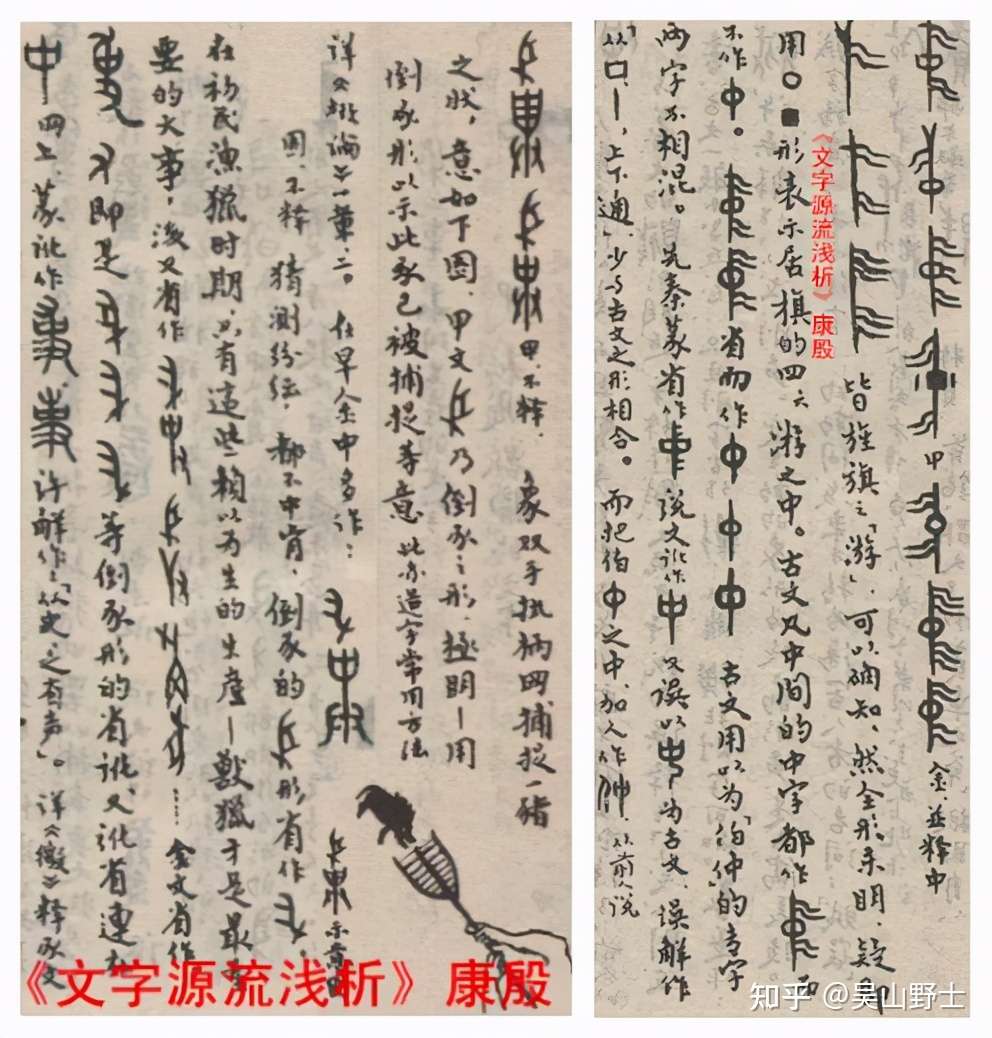 甲、不释、 象双手执柄网捕捉一猪
之状，意如下图，甲文 乃倒豕之形，极明—用
倒豕形以示此豕已被捕捉等意 此亦造字常用方法
详《概论》一章、二。 在早金中多作： 示意图
图、不释 猜测纷纭，都不中肯，倒豕的 形省作
在初民渔猎时期，只有这些赖以为生的生产—兽猎才是最
要的大事，后又省作 …… 金文省作
即是 等倒豕形的省讹又讹省连
中 网上、篆讹作 许解作：「从史之省声」。详《徵》释豕文
《文字源流浅析》康殷
甲 金、并释中
皆旌旗之「游」，可以确知，然全形未明，疑即
用〇■形表示居旗的四、六游之中。古文凡中间的中字都作 而
不作中。 省而作中 中 中 古文用以为「伯仲」的专字
两字不相混。先秦篆省作 说文讹作中 又误以 为古文，误解作
「从口丨，上下通」少与古文之形相合。而把伯中之中，加人作仲，从前人说
《文字源流浅析》康殷
知乎 @吴山野士